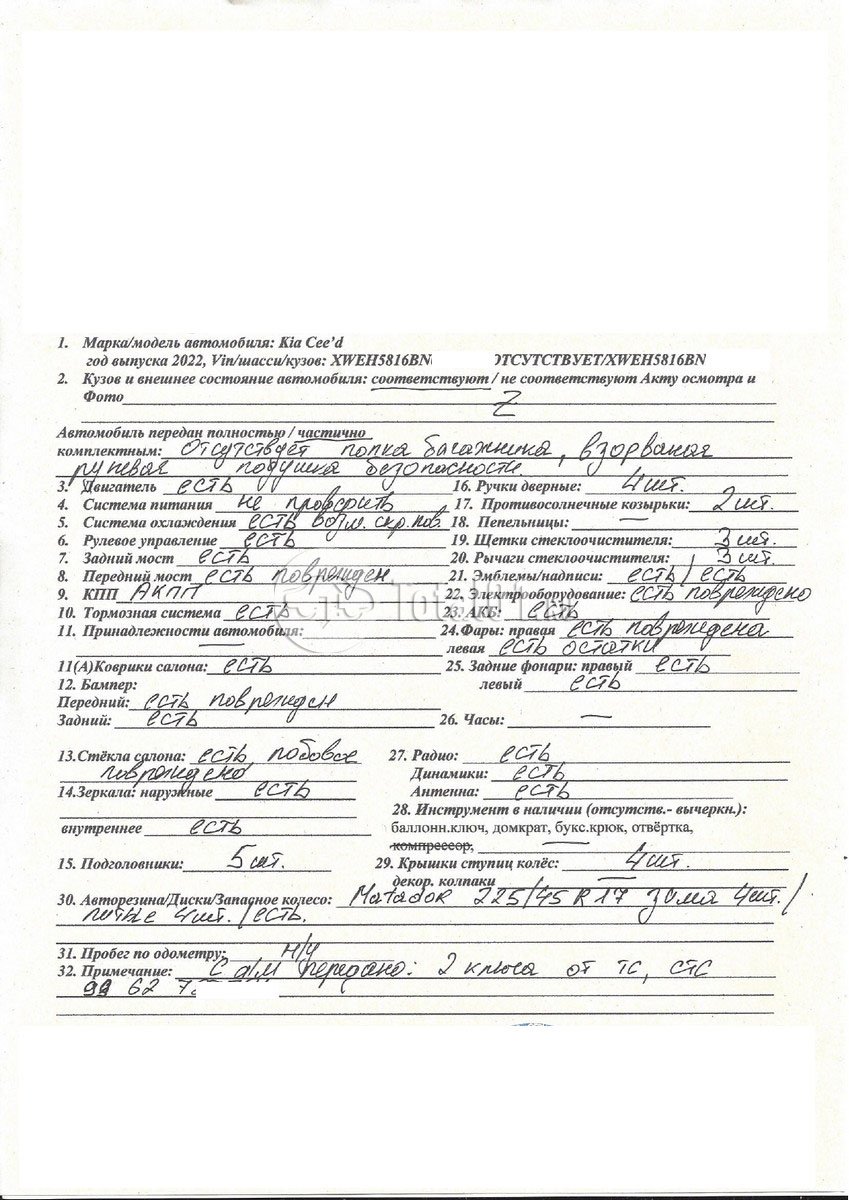 1. Марка/модель автомобиля: Kia Cee'd
год выпуска 2022, Vin/шасси/кузов: XWEH5816BN ОТСУТСТВУЕТ/XWEH5816BN
2. Кузов и внешнее состояние автомобиля: соответствуют / не соответствуют Акту осмотра и
Фото Z
Автомобиль передан полностью / частично
комплектным: Отсутствует полка багажника, взорваная
рулевая подушка безопасности
3. Двигатель есть
4. Система питания не проверить
5. Система охлаждения есть возм. скр. пов.
6. Рулевое управление есть
7. Задний мост есть
8. Передний мост есть поврежден
9. КПП АКПП
10. Тормозная система есть
11. Принадлежности автомобиля: —
11(А)Коврики салона: есть
12. Бампер:
Передний: есть поврежден
Задний: есть
16. Ручки дверные: 4 шт.
17. Противосолнечные козырьки: 2 шт.
18. Пепельницы: —
19. Щетки стеклоочистителя: 3 шт.
20. Рычаги стеклоочистителя: 3 шт.
21. Эмблемы/надписи: есть / есть
22. Электрооборудование: есть повреждено
23. АКБ: есть
24.Фары: правая есть повреждена
левая есть остатки
25. Задние фонари: правый есть
левый есть
26. Часы: —
13.Стёкла салона: есть лобовое
повреждено
14.Зеркала: наружные есть
внутреннее есть
15. Подголовники: 5 шт.
27. Радио: есть
Динамики: есть
Антенна: есть
28. Инструмент в наличии (отсутств.- вычеркн.):
баллонн.ключ, домкрат, букс.крюк, отвёртка,
компрессор, —
29. Крышки ступиц колёс: 4 шт.
декор. колпаки —
30. Авторезина/Диски/Запасное колесо: Matador 225/45 R17 зима 4 шт. /
литые 4 шт. / есть.
31. Пробег по одометру: н/у
32. Примечание: С а/м передано: 2 ключа от ТС, СТС
99 62 7